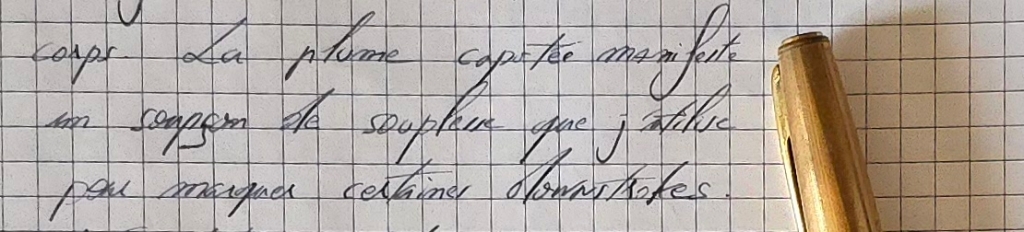 corps. La plume capotée manifeste
un soupçon de souplesse que j'utilise
pour marquer certaines downstrokes.